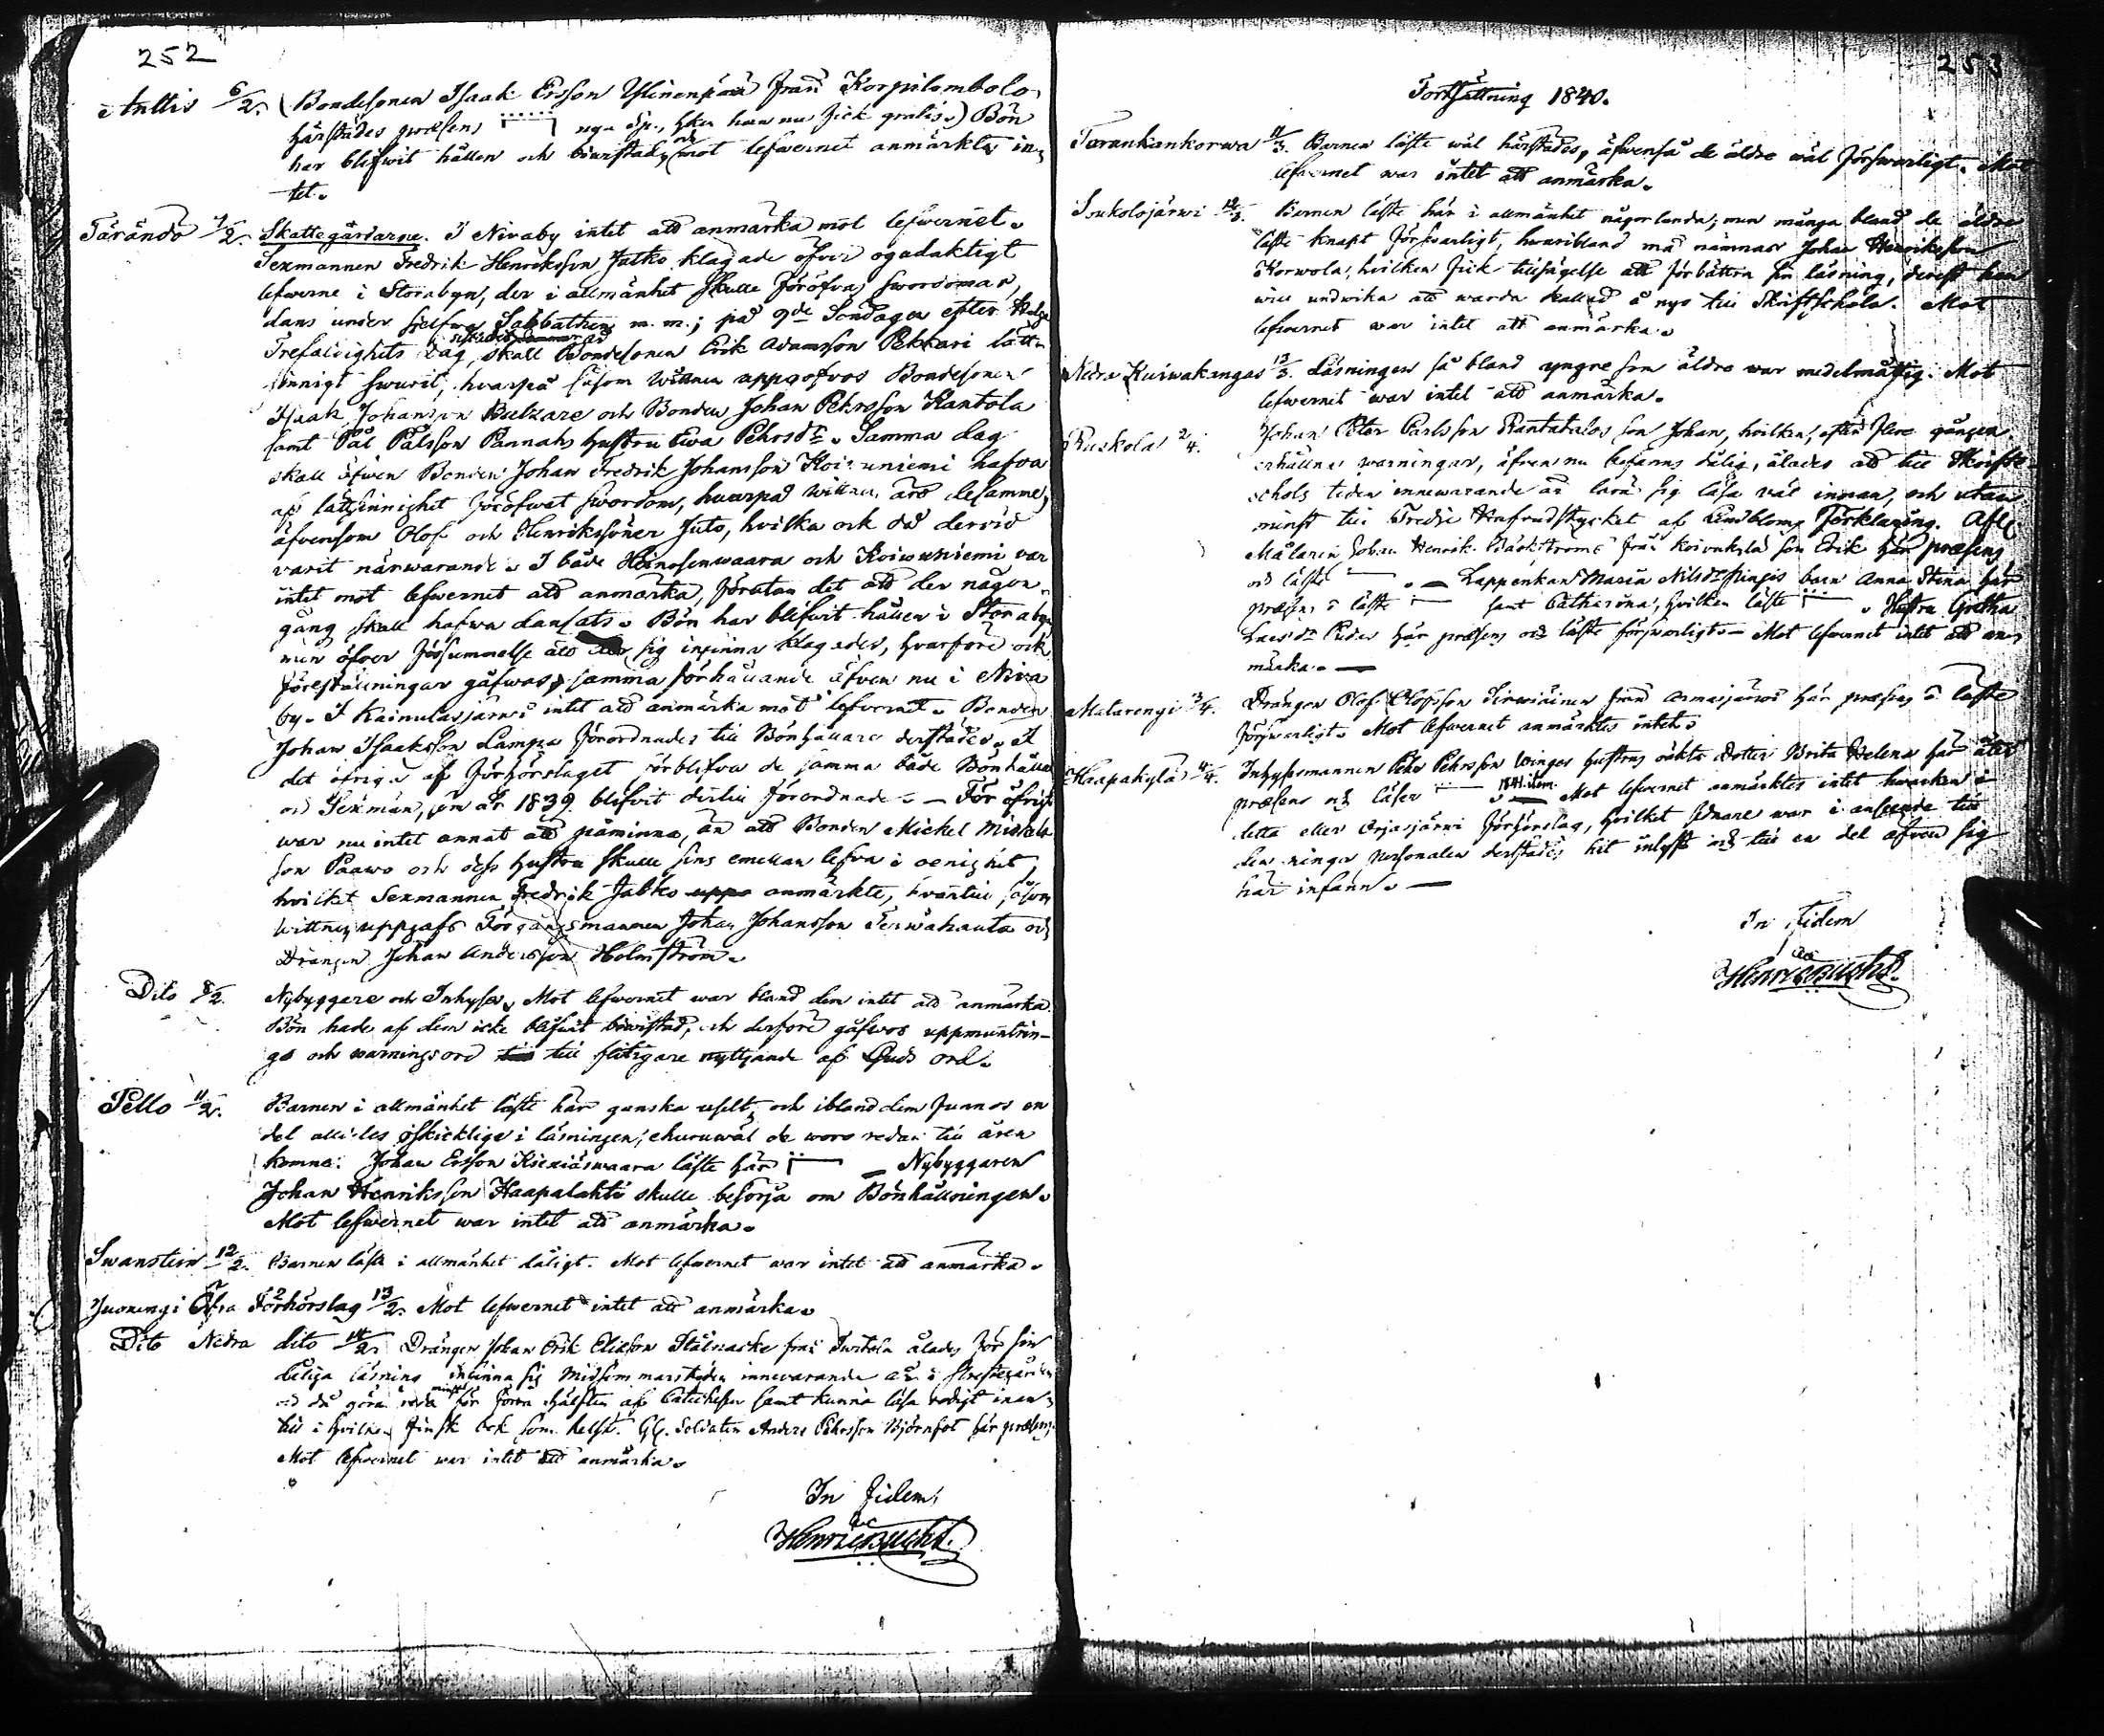 252
Anttis 6/2. (Bondesonen Isaak Ersson Ylinenpää från Korpilombolo,
härstädes præsens nya Sp., hken han nu fick gratis.) Bön
har blifwit hållen och biwistad, och mot lefwernet anmärktes in-
tet.
Tärändö 7/2. Skattegårdarne. I Nivaby intet att anmärka mot lefwernet.
Sexmannen Fredrik Henriksson Jatko klagade öfwer ogudaktigt
lefwerne i Storabyn, der i allmänhet skulle föröfvas swordomar,
dans under sjelfwa Sabbathen m. m.; på 9de Söndagen efter Helga
Trefaldighets dag, skall Bondesonen Erik Adamsson Pekkari lätt-
sinnigt swurit, hvarpå såsom wittnen uppgofvos Bondesonen
Isaak Johansson och Bonden Johan Pehrsson Kantola
samt Pål Pålsson Pannahs hustru Ewa Pehrsdr. Samma dag
skall äfwen Bonden Johan Fredrik Johansson Koivuniemi hafva
af lättsinnighet föröfwat swordom, hwarpå wittnen äro desamme,
äfvensom Olof och Henrikssöner Juto, hvilka ock då dervid
varit närwarande. I både Heinosenwaara och Koivuniemi var
intet mot lefwernet att anmärka, förutan det att der någon
gång skall hafwa dansats. Bön har blifvit hållen i Storaby,
men öfver försummelse att sig infinna klagades, hvarföre ock
föreställningar gåfwos, samma förhållande äfven nu i Niva
by. I Kainulasjärvi intet att anmärka mot lefvernet. Bonden
Johan Isaaksson Lampa förordnades till Bönhållare derstädes. I
det öfriga af Förhörslaget förblifva de samma både Bönhållare
och Sexmän, som år 1839 blifvit dertill förordnade. — För öfrigt
war nu intet annat att påminna, än att Bonden Mickel Mickels-
son Paawo och dess hustru skulle sins emellan lefva i oenighet,
hvilket Sexmannen Fredrik Jatko uppa anmärkte, hvartill såsom
wittnen uppgafs Förgångsmannen Johan Johansson Terwahauta och
Drängen Johan Andersson Holmström.
Dito 8/2. Nybyggare och Inhyses. Mot lefwernet war bland dem intet att anmärka.
Bön hade af dem icke blifwit biwistad, och derföre gåfvos uppmuntrin-
gs och warningsord till till flitigare nyttjande af Guds ord.
Pello 11/2. Barnen i allmänhet läste här ganska uselt, och ibland dem funnos en
del alldeles oskicklige i läsningen, ehuruwäl de woro redan till åren
komne. Johan Ersson Kiexiäswaara läste här — Nybyggaren
Johan Henriksson Haapalahti skulle besörja om Bönhållningen.
Mot lefwernet war intet att anmärka.
Swanstein 12/2. Barnen läste i allmänhet dåligt. Mot lefwernet war intet att anmärka.
Juoxengi Öfra Förhörslag 13/2. Mot lefwernet intet att anmärka.
Dito Nedra dito 14/2. Drängen Johan Erik Eliasson Stålnacke från Turtola ålades för sin
dåliga läsning infinna sig Midsommarstiden innevarande år i Prestegården
och då göra reda minst för förra hälften af Catechesen samt kunna läsa redigt inan-
till i hvilken finsk bok som helst. Gl. Soldaten Anders Pehrsson Björnfot här præsens.
Mot lefwernet war intet att anmärka.
In fidem,
Henric Bucht.
253
Fortsättning 1840.
Tarankankorwa 11/3. Barnen läste wäl härstädes, äfwenså de äldre wäl försvarligt. Mot
lefwernet war intet att anmärka.
Soukolojärwi 12/3. Barnen läste här i allmänhet någorlunda; men många bland de äldre
läste knapt försvarligt, hwaribland må nämnas Johan Henriksson
Korwola, hvilken fick tillsägelse att förbättra sin läsning, derest han
will undwika att warda kallad å nyo till Skriftschola. Mot
lefwernet war intet att anmärka.
Nedra Kuiwakangas 13/3. Läsningen så bland yngre som äldre war medelmåttig. Mot
lefwernet war intet att anmärka.
Ruskola 2/4. Johan Peter Carlsson Rantatalos son Johan, hvilken, efter flere gånger
erhållna warningar, äfven nu befanns dålig, ålades att till Skrift-
schols tiden innewarande år lära sig läsa väl innan, och utan
minst till Tredje Hufvudstycket af Lindbloms Förklaring. Afl.
Målaren Johan Henrik Bäckströms från Koivukylä son Erik här præsens
och läste — Lappenkan Maria Nilsdr barn Anna Stina här
præsens o läste samt Catharina, hvilken läste . Hustru Gretha
Larsdr här præsens och läste försvarligt. — Mot lefwernet intet att an-
märka. —
Matarengi 3/4. Drängen Olof Olofsson från Armasjärwi här præsens o läste
försvarligt. Mot lefwernet anmärktes intet.
Haapakylä 4/4. Inhysesmannen Pehr Pehrsson Winges hustrus oäkta Dotter Brita Helena här åter
præsens och läser 1841 item. — Mot lefwernet anmärktes intet hwarken i
detta eller Orjasjärwi Förhörslag, hvilket senare war i anseende till
den ringa personalen derstädes hit inlyst och till en del äfwen sig
här infann. —
In fidem
Henric Bucht.